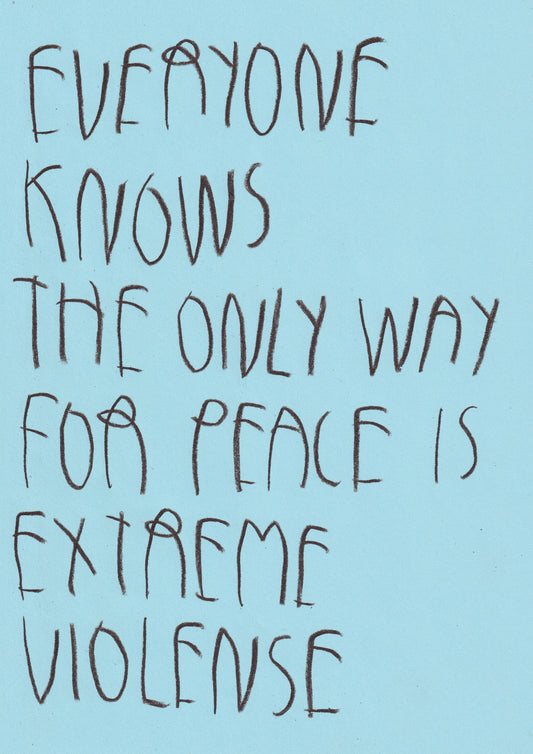 EVERYONE
KNOWS
THE ONLY WAY
FOR PEACE IS
EXTREME
VIOLENSE